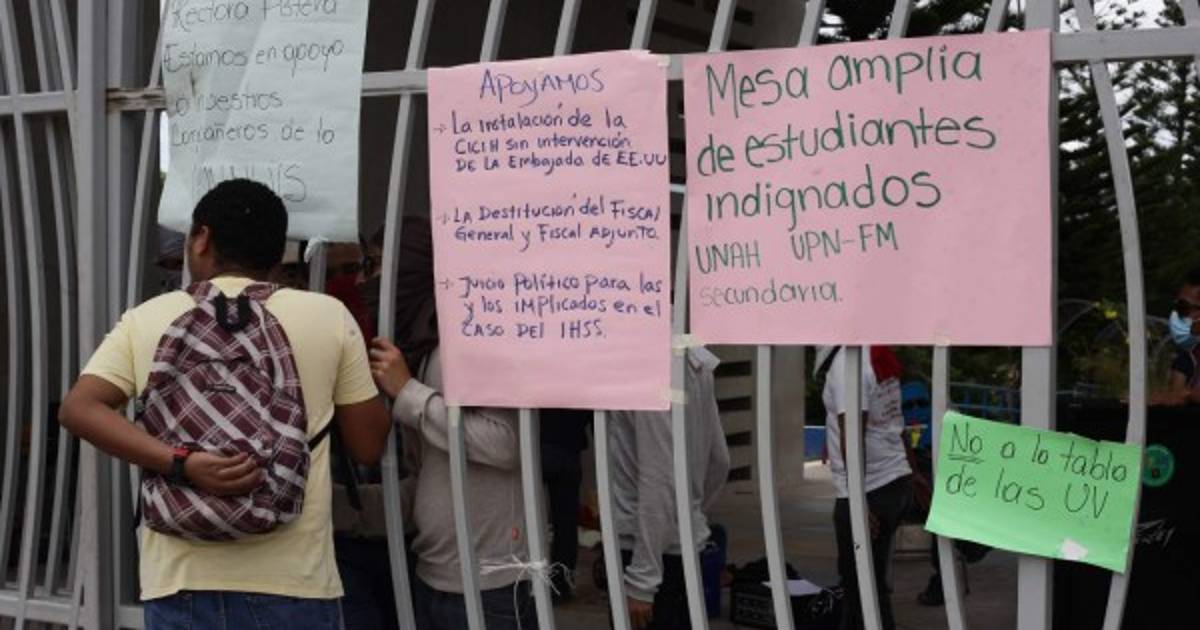 Rectora
Estamos en apoyo
Compañeros de la
Apoyamos
→ La instalación de la
CICIH sin intervención
DE LA Embajada de EE.UU
→ LA Destitución del Fiscal
General y Fiscal ADJUNTO.
→ Juicio Político para las
y los IMPLICADOS en el
CASO DEL IHSS.
Mesa amplia
de estudiantes
indignados
UNAH UPN-FM
secundaria.
No a la tabla
de las UV